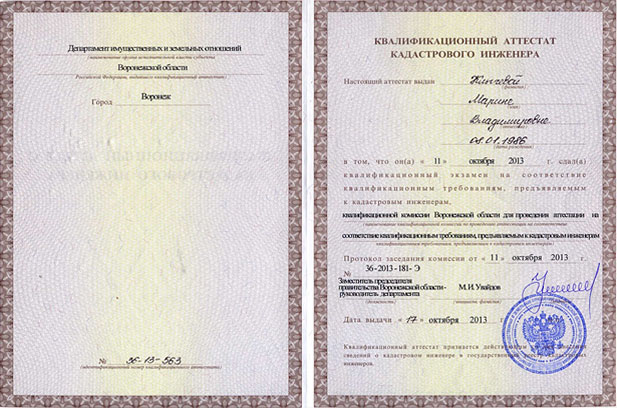 Департамент имущественных и земельных отношений
(наименование органа исполнительной власти субъекта
Воронежской области
Российской Федерации, выдавшего квалификационный аттестат)
Город Воронеж
№ 36-13-563
(идентификационный номер квалификационного аттестата)
КВАЛИФИКАЦИОННЫЙ АТТЕСТАТ
КАДАСТРОВОГО ИНЖЕНЕРА
Настоящий аттестат выдан
(фамилия)
Марине
(имя)
Владимировне
(отчество)
08.01.1986
(дата рождения)
в том, что он(а) « 11 » октября 2013 г. сдал(а)
квалификационный экзамен на соответствие
квалификационным требованиям, предъявляемым
к кадастровым инженерам,
квалификационной комиссии Воронежской области для проведения аттестации на
(наименование квалификационной комиссии по проведению аттестации на соответствие
соответствие квалификационным требованиям, предъявляемым к кадастровым инженерам
квалификационным требованиям, предъявляемым к кадастровым инженерам)
Протокол заседания комиссии от « 11 » октября 2013 г.
№ 36-2013-181- Э
Заместитель председателя
правительства Воронежской области -
руководитель департамента
М. И. Увайдов
(должность) (инициалы, фамилия)
Дата выдачи « 17 » октября 2013 г.
Квалификационный аттестат признается действующим
сведений о кадастровом инженере в государственный реестр кадастровых
инженеров.